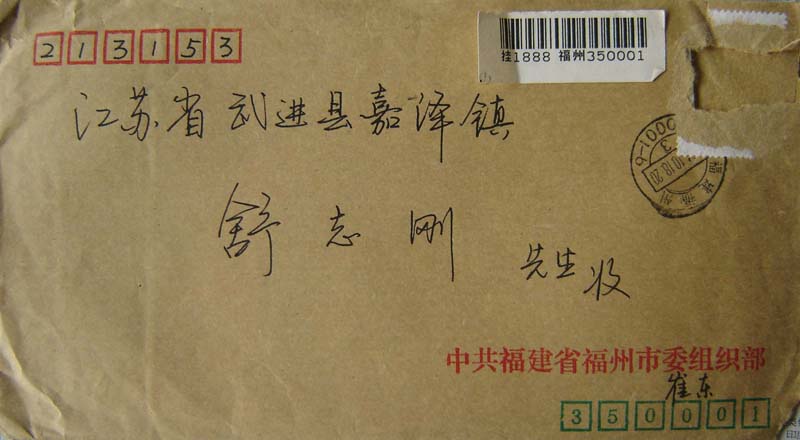 213153
挂1888 福州350001
江苏省武进县嘉泽镇
舒志刚 先生收
中共福建省福州市委组织部
崔东
350001